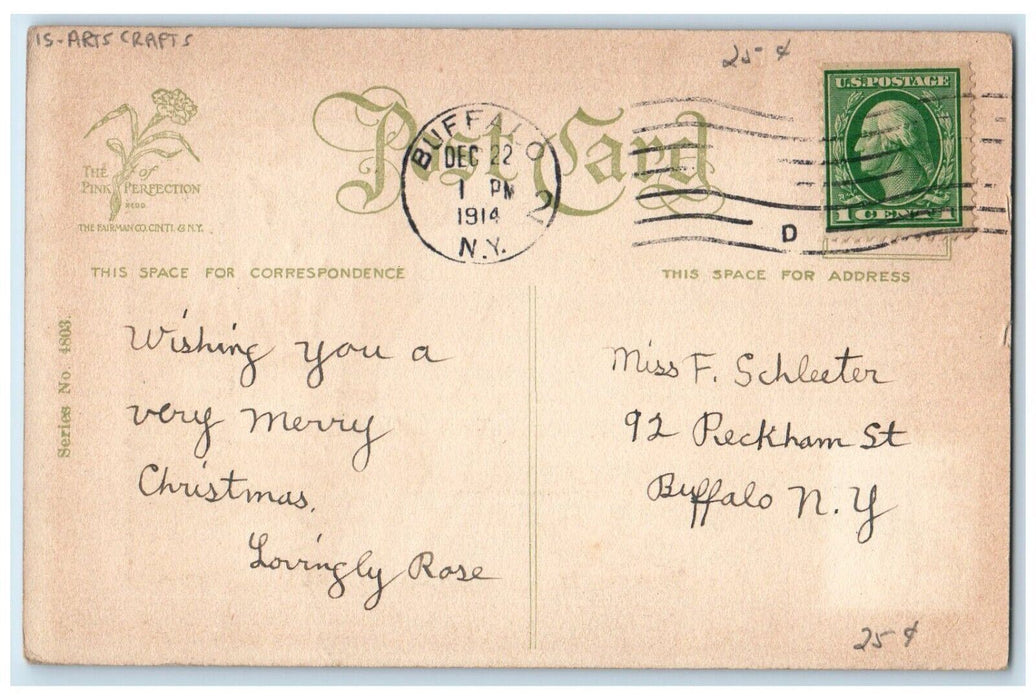 IS-ARTS CRAFTS
25 ¢
THE of
PINK PERFECTION
THE FAIRMAN CO. CINTI. & N.Y.
Post Card
BUFFALO
DEC 22
1 PM
1914
N.Y.
2
D
U.S. POSTAGE
1 CENT 1
THIS SPACE FOR CORRESPONDENCE
THIS SPACE FOR ADDRESS
Series No. 4803.
Wishing you a
very Merry
Christmas.
Lovingly Rose
Miss F. Schleeter
92 Peckham St
Buffalo N.Y
25 ¢